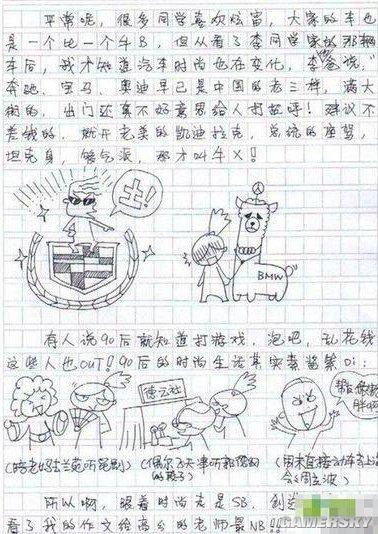 平常呢，很多同学喜欢炫富，大家的车也
是一个比一个牛B，但从看了李同学家的那辆
车后，我才知道汽车时尚也在变化，李爸说"
奔驰、宝马、奥迪早已是中国的老三样，满大
街的，出门还真不好意思给人打招呼！建议不
差钱的，就开老美的凯迪拉克，总统的座驾，
坦克身，够气派，那才叫牛X！
土！
BMW
有人说90后就知道打游戏，泡吧，乱花钱
这些人也OUT！90后的时尚生活其实
德云社
(陪老妈去兰苑听昆剧)
(偶尔飞天津听郭德纲
的段子)
(周末直接 动车上海
会周立波)
所以啊，跟着时尚走是SB，创造
看了我的作文给高分的老师最NB！！
GAMERSKY